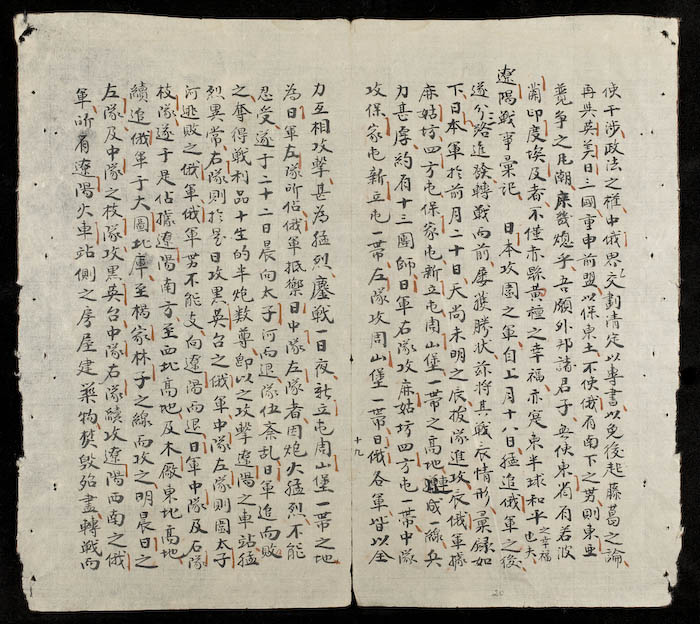 使干涉政法之權中俄界亦交劃清定以專書以免後起藤葛之論
再與英美日三國重申前盟以保東土不使俄有南下之势則東亜
競爭之风潮庶幾熄乎吾願外邦諸君子无使東省有若波
蘭印度埃及者不僅亦縣黄種之幸福亦寔東半球和平之幸福也夫
遼陽戰事彙記　日本攻圍之軍自上月十八日猛追俄軍之後
遂分三路進發轉戰而前屢獲勝状茲将其戰辰情形彙録如
下日本軍於前月二十日天尚未明之辰拔隊進攻辰俄軍據
麻姑坊四方屯保家屯新立屯周山堡一帶之高地連成一線兵
力甚厚約有十三團師日軍右隊攻麻姑坊四方屯一帶中隊
攻保家屯新立屯一帶左隊攻周山堡一帶日俄各軍皆以全
十九
力互相攻擊甚為猛烈鏖戰一日夜新立屯周山堡一帶之地
為日軍左隊所佔俄軍抵禦日中隊左隊者因炮火猛烈不能
忍受遂于二十二日晨向太子河而退隊伍紊乱日軍追而敗
之奪得戰利品十生的半炮数尊即以之攻擊遼陽之車站猛
烈異常右隊則於是日攻黒英台之俄軍中隊左隊則圖太子
河逃敗之俄軍俄軍势不能支向遼陽而退日軍中隊及右隊
枝隊遂于是佔據遼陽南方至西北高地及木廠東北高地
續追俄軍于大圖北庫至楊家林子之線而攻之明晨日之
左隊及中隊之枝隊攻黒英台中隊右隊續攻遼陽西南之俄
軍所有遼陽火車站側之房屋建築物焚毁殆盡轉戰而
20